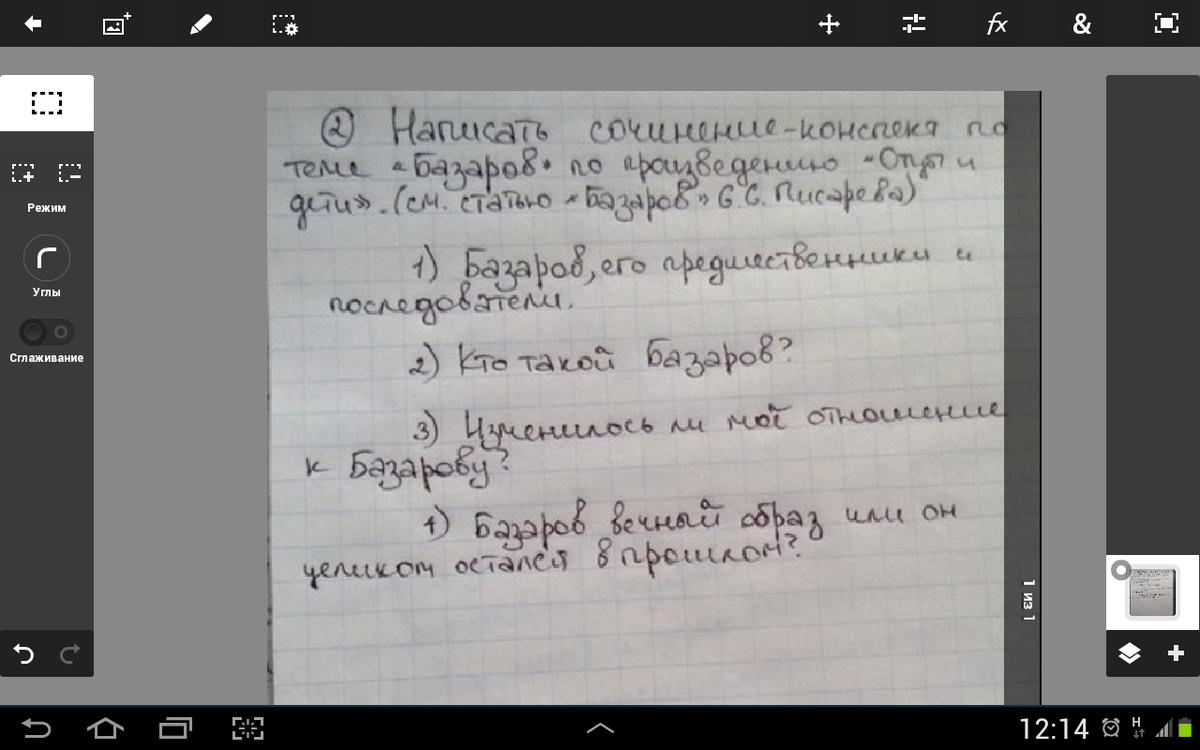 fx
&
Режим
Углы
Сглаживание
② Написать сочинение-конспект по
теме «Базаров» по произведению «Отцы и
дети». (см. статью «Базаров» С.С. Писарева)
1) Базаров, его предшественники и
последователи.
2) Кто такой Базаров?
3) Изменилось ли моё отношение
к Базарову?
4) Базаров вечный образ или он
целиком остался в прошлом?
1 из 1
12:14
H